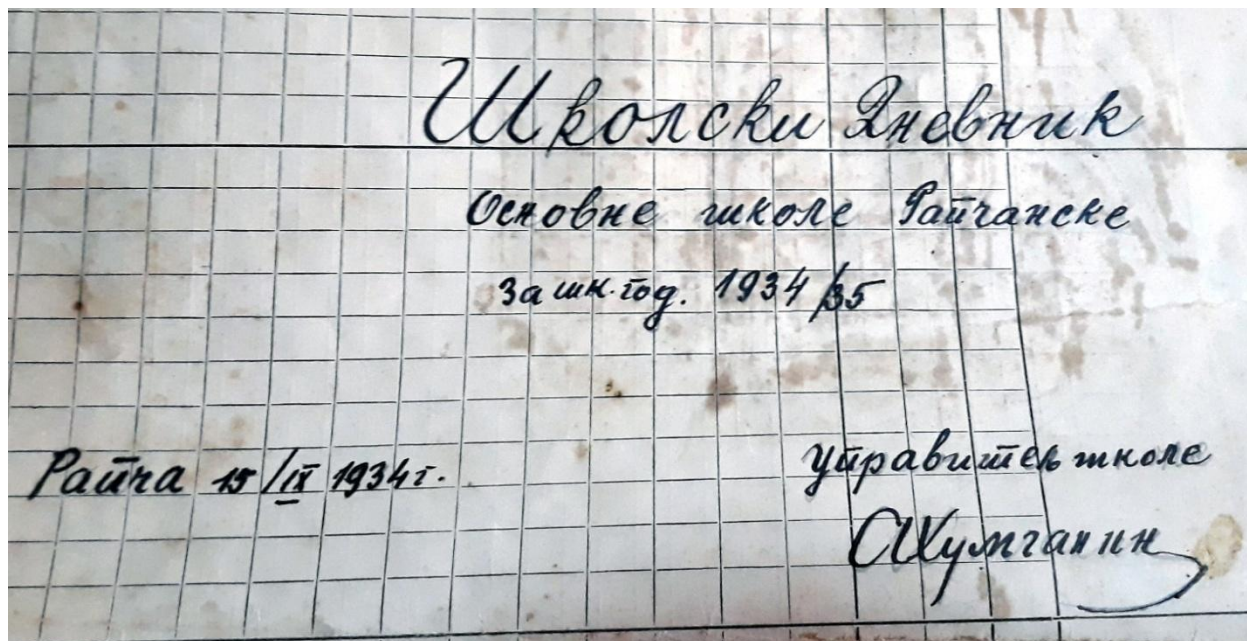 Школски Дневник
Основне школе Рапчанске
за шк. год. 1934/35
Рапча 15/IX 1934 г.
Управитељ школе